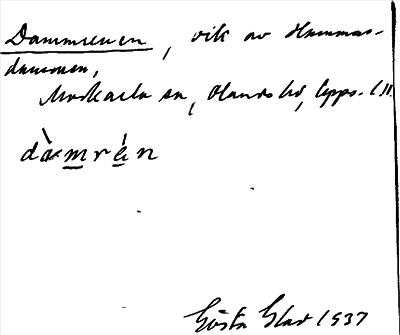 Dammrenen, vik av Hammar-
dammen,
Markarla sn, Olands hd, Upps. l.
dàmrén
Gösta Glad 1937